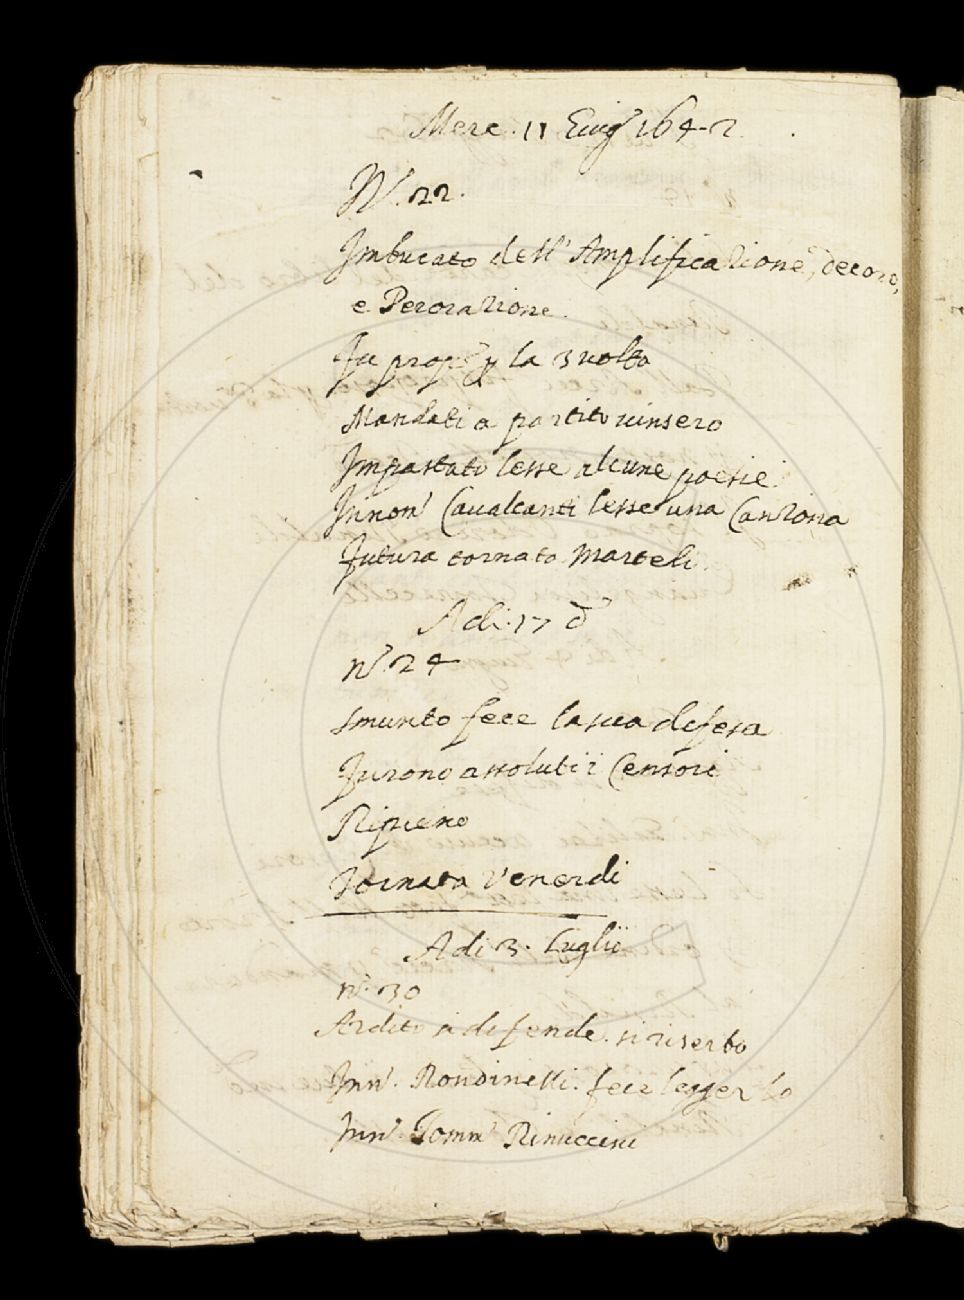 Merc. 11 Giug.o 1642
N.o 22.
Imbucato dell' Amplificazione, decoro,
e Perorazione.
Fu prop.o p la 3 uolta
Mandati a partito uinsero
Impastato lesse alcune poesie
Innom.o Caualcanti lesse una Canzona
futura tornato Marteli.
Adi. 17 d.o
n.o 24
Smunto fece la sua difesa
Furono assoluti i Censori
Ripieno
Tornata Venerdi
Adi 3. Luglio
n.o 30
Ardito a difende. si riserbo
Inn.o Rondinelli. fece legger lo
Inn.o Tomm.o Rinuccini